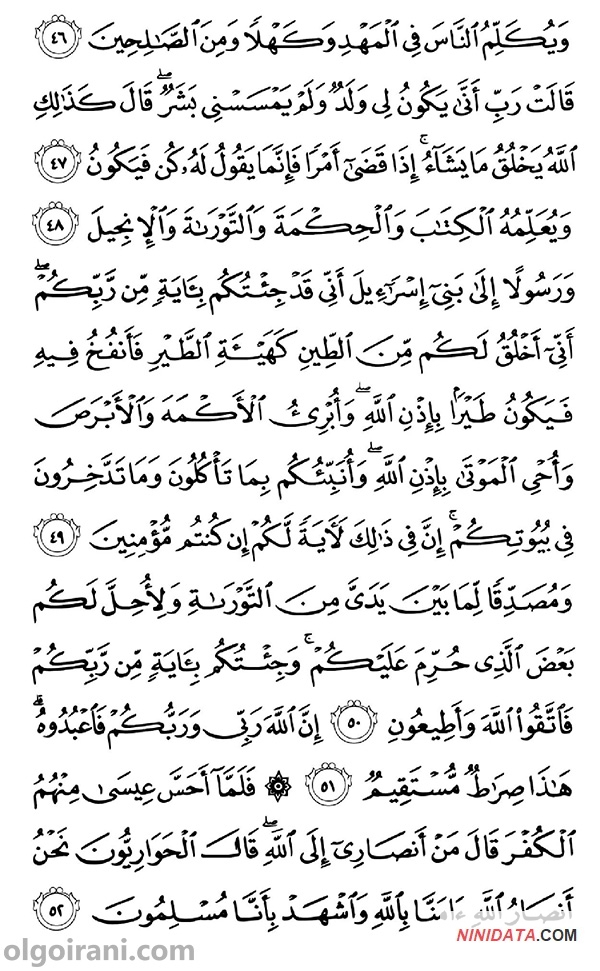 وَيُكَلِّمُ ٱلنَّاسَ فِي ٱلْمَهْدِ وَكَهْلًا وَمِنَ ٱلصَّـٰلِحِينَ ٤٦
قَالَتْ رَبِّ أَنَّىٰ يَكُونُ لِى وَلَدٌ وَلَمْ يَمْسَسْنِى بَشَرٌ ۖ قَالَ كَذَٰلِكِ
ٱللَّهُ يَخْلُقُ مَا يَشَآءُ ۚ إِذَا قَضَىٰٓ أَمْرًا فَإِنَّمَا يَقُولُ لَهُۥ كُن فَيَكُونُ ٤٧
وَيُعَلِّمُهُ ٱلْكِتَـٰبَ وَٱلْحِكْمَةَ وَٱلتَّوْرَىٰةَ وَٱلْإِنجِيلَ ٤٨
وَرَسُولًا إِلَىٰ بَنِىٓ إِسْرَٰٓءِيلَ أَنِّى قَدْ جِئْتُكُم بِـَٔايَةٍ مِّن رَّبِّكُمْ ۖ
أَنِّىٓ أَخْلُقُ لَكُم مِّنَ ٱلطِّينِ كَهَيْـَٔةِ ٱلطَّيْرِ فَأَنفُخُ فِيهِ
فَيَكُونُ طَيْرًۢا بِإِذْنِ ٱللَّهِ ۖ وَأُبْرِئُ ٱلْأَكْمَهَ وَٱلْأَبْرَصَ
وَأُحْىِ ٱلْمَوْتَىٰ بِإِذْنِ ٱللَّهِ ۖ وَأُنَبِّئُكُم بِمَا تَأْكُلُونَ وَمَا تَدَّخِرُونَ
فِى بُيُوتِكُمْ ۚ إِنَّ فِى ذَٰلِكَ لَـَٔايَةً لَّكُمْ إِن كُنتُم مُّؤْمِنِينَ ٤٩
وَمُصَدِّقًا لِّمَا بَيْنَ يَدَىَّ مِنَ ٱلتَّوْرَىٰةِ وَلِأُحِلَّ لَكُم
بَعْضَ ٱلَّذِى حُرِّمَ عَلَيْكُمْ ۚ وَجِئْتُكُم بِـَٔايَةٍ مِّن رَّبِّكُمْ
فَٱتَّقُوا۟ ٱللَّهَ وَأَطِيعُونِ ٥٠ إِنَّ ٱللَّهَ رَبِّى وَرَبُّكُمْ فَٱعْبُدُوهُ ۗ
هَـٰذَا صِرَٰطٌ مُّسْتَقِيمٌ ٥١ ۞ فَلَمَّآ أَحَسَّ عِيسَىٰ مِنْهُمُ
ٱلْكُفْرَ قَالَ مَنْ أَنصَارِىٓ إِلَى ٱللَّهِ ۖ قَالَ ٱلْحَوَارِيُّونَ نَحْنُ
أَنصَارُ ٱللَّهِ ءَامَنَّا بِٱللَّهِ وَٱشْهَدْ بِأَنَّا مُسْلِمُونَ ٥٢
NINIDATA.COM
olgoirani.com